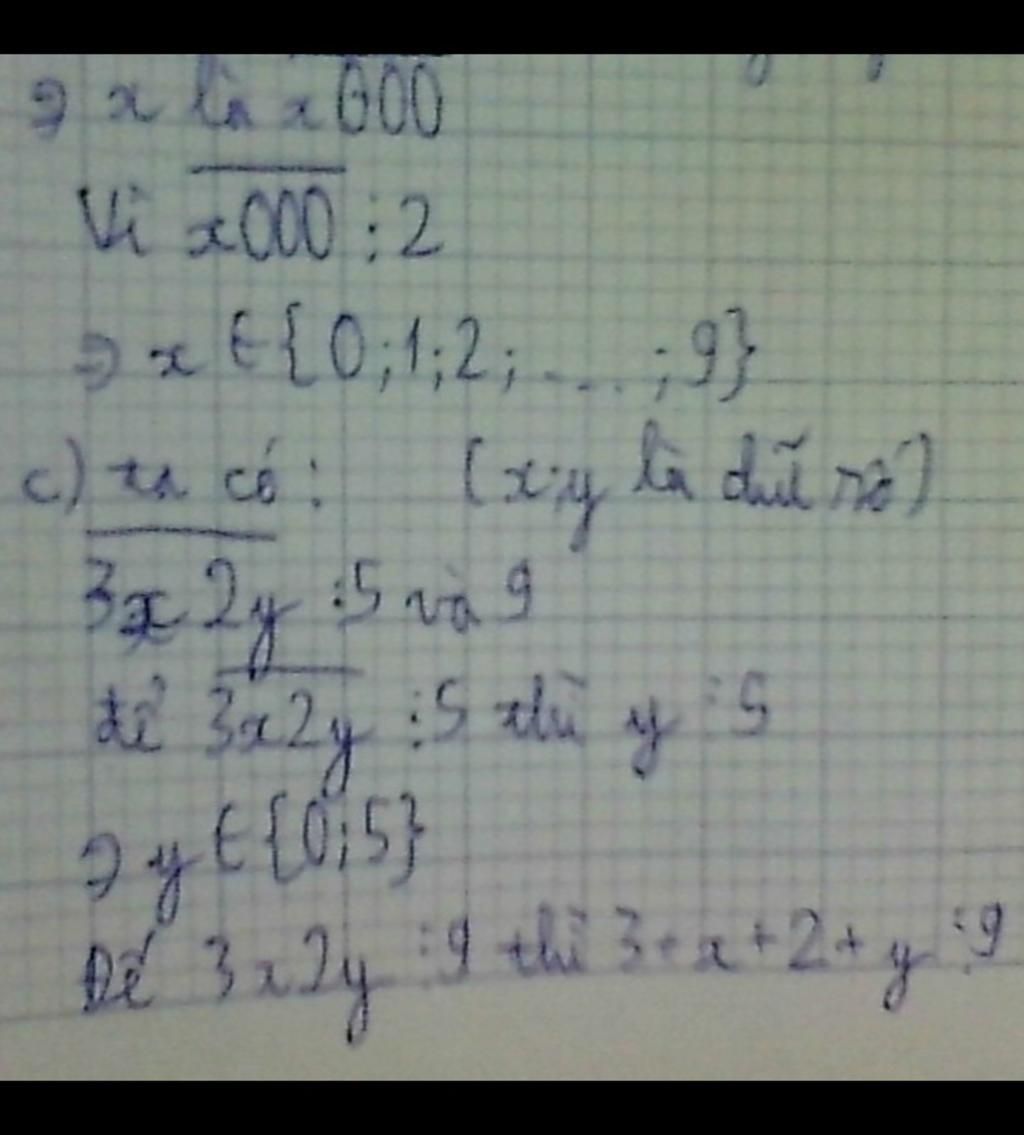 ⇒ x là x000
Vì x000 ⋮ 2
⇒ x ∈ {0;1;2;....;9}
c) ta có: (x;y là chữ số)
3x2y ⋮ 5 và 9
để 3x2y ⋮ 5 thì y ⋮ 5
⇒ y ∈ {0;5}
Để 3x2y ⋮ 9 thì 3+x+2+y ⋮ 9